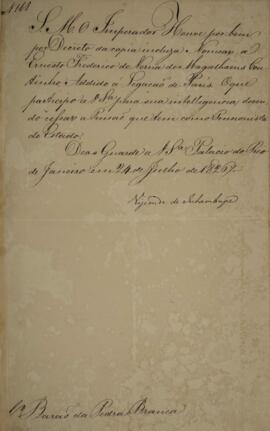 Nº 168
S. M. O Imperador Houve por bem
por Decreto da copia incluza Nomear a
Ernesto Frederico de Verna de Magalhaens Cou
tinho Addido á Legação de Paris. O que
participo a V. Sa. para sua intelligencia deven
do cessar a Pensão que tem como Pensionista
do Estado.
Deos Guarde a V. Sa. Palacio do Rio
de Janeiro em 24 de Julho de 1826.
Visconde de Inhambupe
Sr. Barão da Pedra Branca